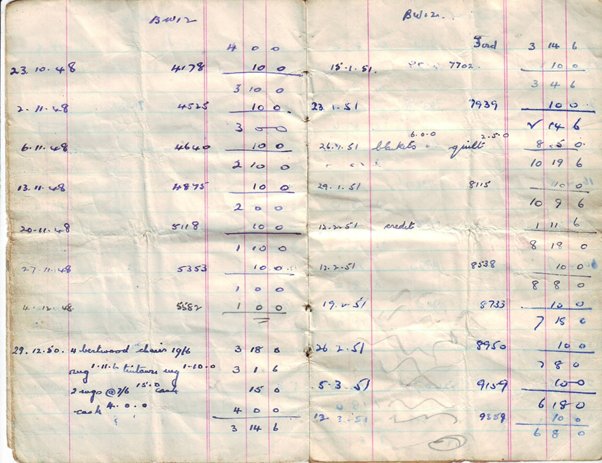 BW12
4 0 0
23.10.48 4178 10 0
3 10 0
2.11.48 4525 10 0
3 0 0
6.11.48 4640 10 0
2 10 0
13.11.48 4875 10 0
2 0 0
20.11.48 5118 10 0
1 10 0
27.11.48 5353 10 0
1 0 0
4.12.48 5582 1 0 0
29.12.50. 4 bentwood chairs 19/6 3 18 0
rug 1-11-6 rug 1-10-0 3 1 6
2 rugs @ 7/6 15.0 cash 15 0
cash 4.0.0 4 0 0
3 14 6
BW12
Ford 3 14 6
15.1.51. 7702 10 0
3 4 6
23.1.51 7939 10 0
2 14 6
6.0.0 2.5.0
26.1.51 blankets quilt 8 5 0
10 19 6
29.1.51 8115 10 0
10 9 6
12.2.51 credit 1 11 6
8 19 0
12.2.51 8538 10 0
8 8 0
19.2.51 8733 10 0
7 18 0
26.2.51 8950 10 0
7 8 0
5.3.51 9159 10 0
6 18 0
12.3.51 9359 10 0
6 8 0